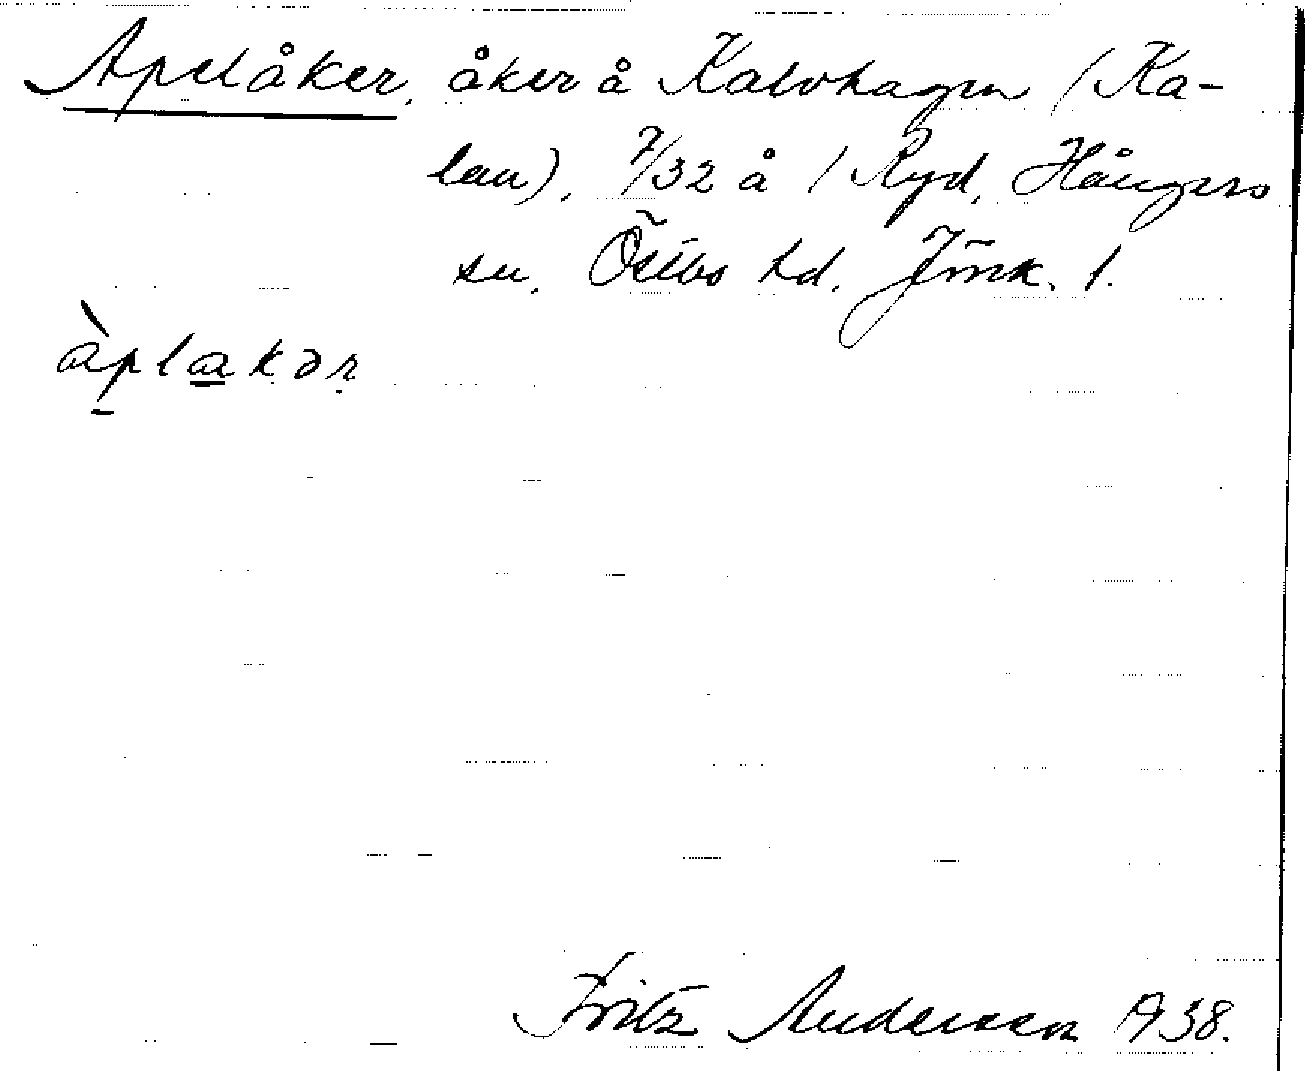 Apelåker, åker å Kalvhagen (Ka-
lau), 7/32 å / Ryd, Hångers
sn, Östbo hd. Jönk. l.
àplakər
Fritz Andersson 1938.